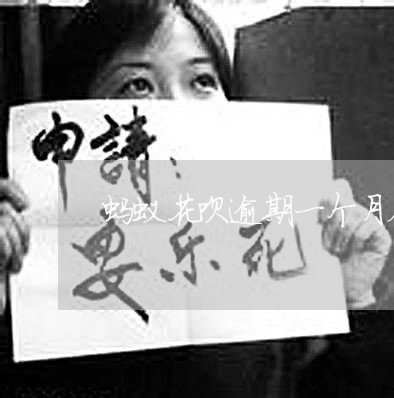 申請：
蚂蚁花呗逾期一个月
安乐死